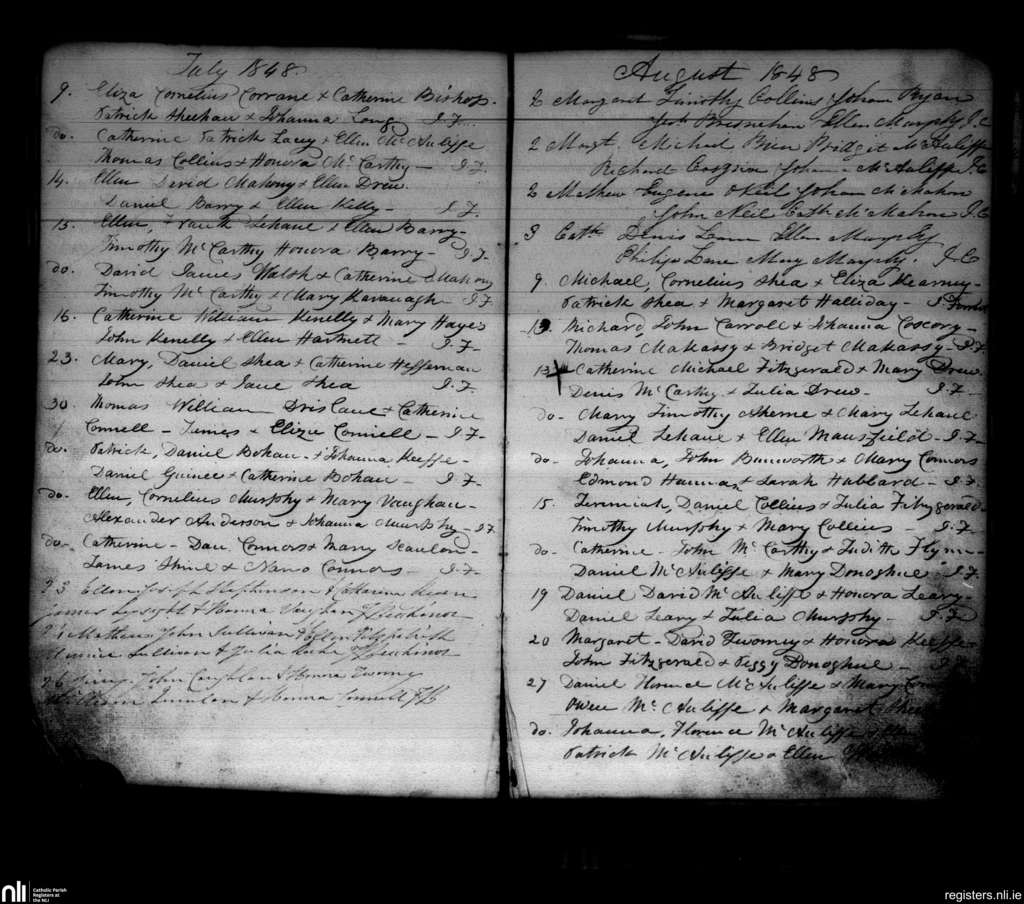 July 1848
9. Eliza Cornelius Corrane & Catherine Bishop.
Patrick Sheehan & Johanna Long J.F.
do. Catherine Patrick Lacey & Ellen McAuliffe
Thomas Collins & Honora McCarthy - J.F.
14. Ellen David Mahony & Ellen Drew.
Daniel Barry & Ellen Kelly - J.F.
15. Ellen, Lehane & Ellen Barry -
Timothy McCarthy Honora Barry - J.F.
do. David James Walsh & Catherine Mahony
Timothy McCarthy & Mary Kavanagh - J.F.
16. Catherine William Kenelly & Mary Hayes
John Kenelly & Ellen Hartnett - J.F.
23. Mary, Daniel Shea & Catherine Heffernan
John Shea & Jane Shea J.F.
30. Thomas William Drislane & Catherine
Connell - James & Eliza Connell - J.F.
do. Patrick, Daniel Bohan & Johanna Keeffe -
Daniel Guinee & Catherine Bohan - J.F.
do. Ellen, Cornelius Murphy & Mary Vaughan -
Alexander Anderson & Johanna Murphy - J.F.
do - Catherine - Dan Connors & Mary Scanlon -
James Shine & Nano Connors - J.F.
23 Stephenson & Catherina
James Lysight & Honora Vaughan
Mathew John Sullivan & Ellen
Sullivan & Julia
26 John Coughlan & Honora Twomey
William Quinlan & Honora Connell
August 1848
2 Margaret Timothy Collins Johan Ryan
Bresnehan Ellen Murphy J.C
2 Margt. Michael Bridgit McAuliffe
Richard Cosgrive Johan McAuliffe J.C
2 Mathew Eugene O Keil Johan McMahon
John Neil Cath McMahon J.C
3 Cath Denis Lane Ellen Murphy
Philip Lane Mary Murphy. J.C
9. Michael, Cornelius Shea & Eliza Kearney -
Patrick Shea & Margaret Halliday -
13. Richard, John Carroll & Johanna Coscory -
Thomas Makassy & Bridget Makassy - J.F.
13 Catherine Michael Fitzgerald & Mary Drew.
Denis McCarthy & Julia Drew. J.F.
do - Mary Timothy Aherne & Mary Lehane
Daniel Lehane & Ellen Mansfield - J.F.
do - Johanna, John Bunworth & Mary Connors
Edmond Hannan & Sarah Hubbard - J.F.
15. Jeremiah, Daniel Collins & Julia Fitzgerald -
Timothy Murphy & Mary Collins - J.F.
do - Catherine - John McCarthy & Judith Flynn -
Daniel McAuliffe & Mary Donoghue J.F.
19 Daniel David McAuliffe & Honora Leary -
Daniel Leary & Julia Murphy - J.F.
20 Margaret - David Twomey & Honora Keeffe -
John Fitzgerald & Peggy Donoghue - J.F.
27 Daniel Florence McAuliffe & Mary
Owen McAuliffe & Margaret
do. Johanna, Florence McAuliffe &
Patrick McAuliffe & Ellen
nli
Catholic Parish
Registers at
the NLI
registers.nli.ie